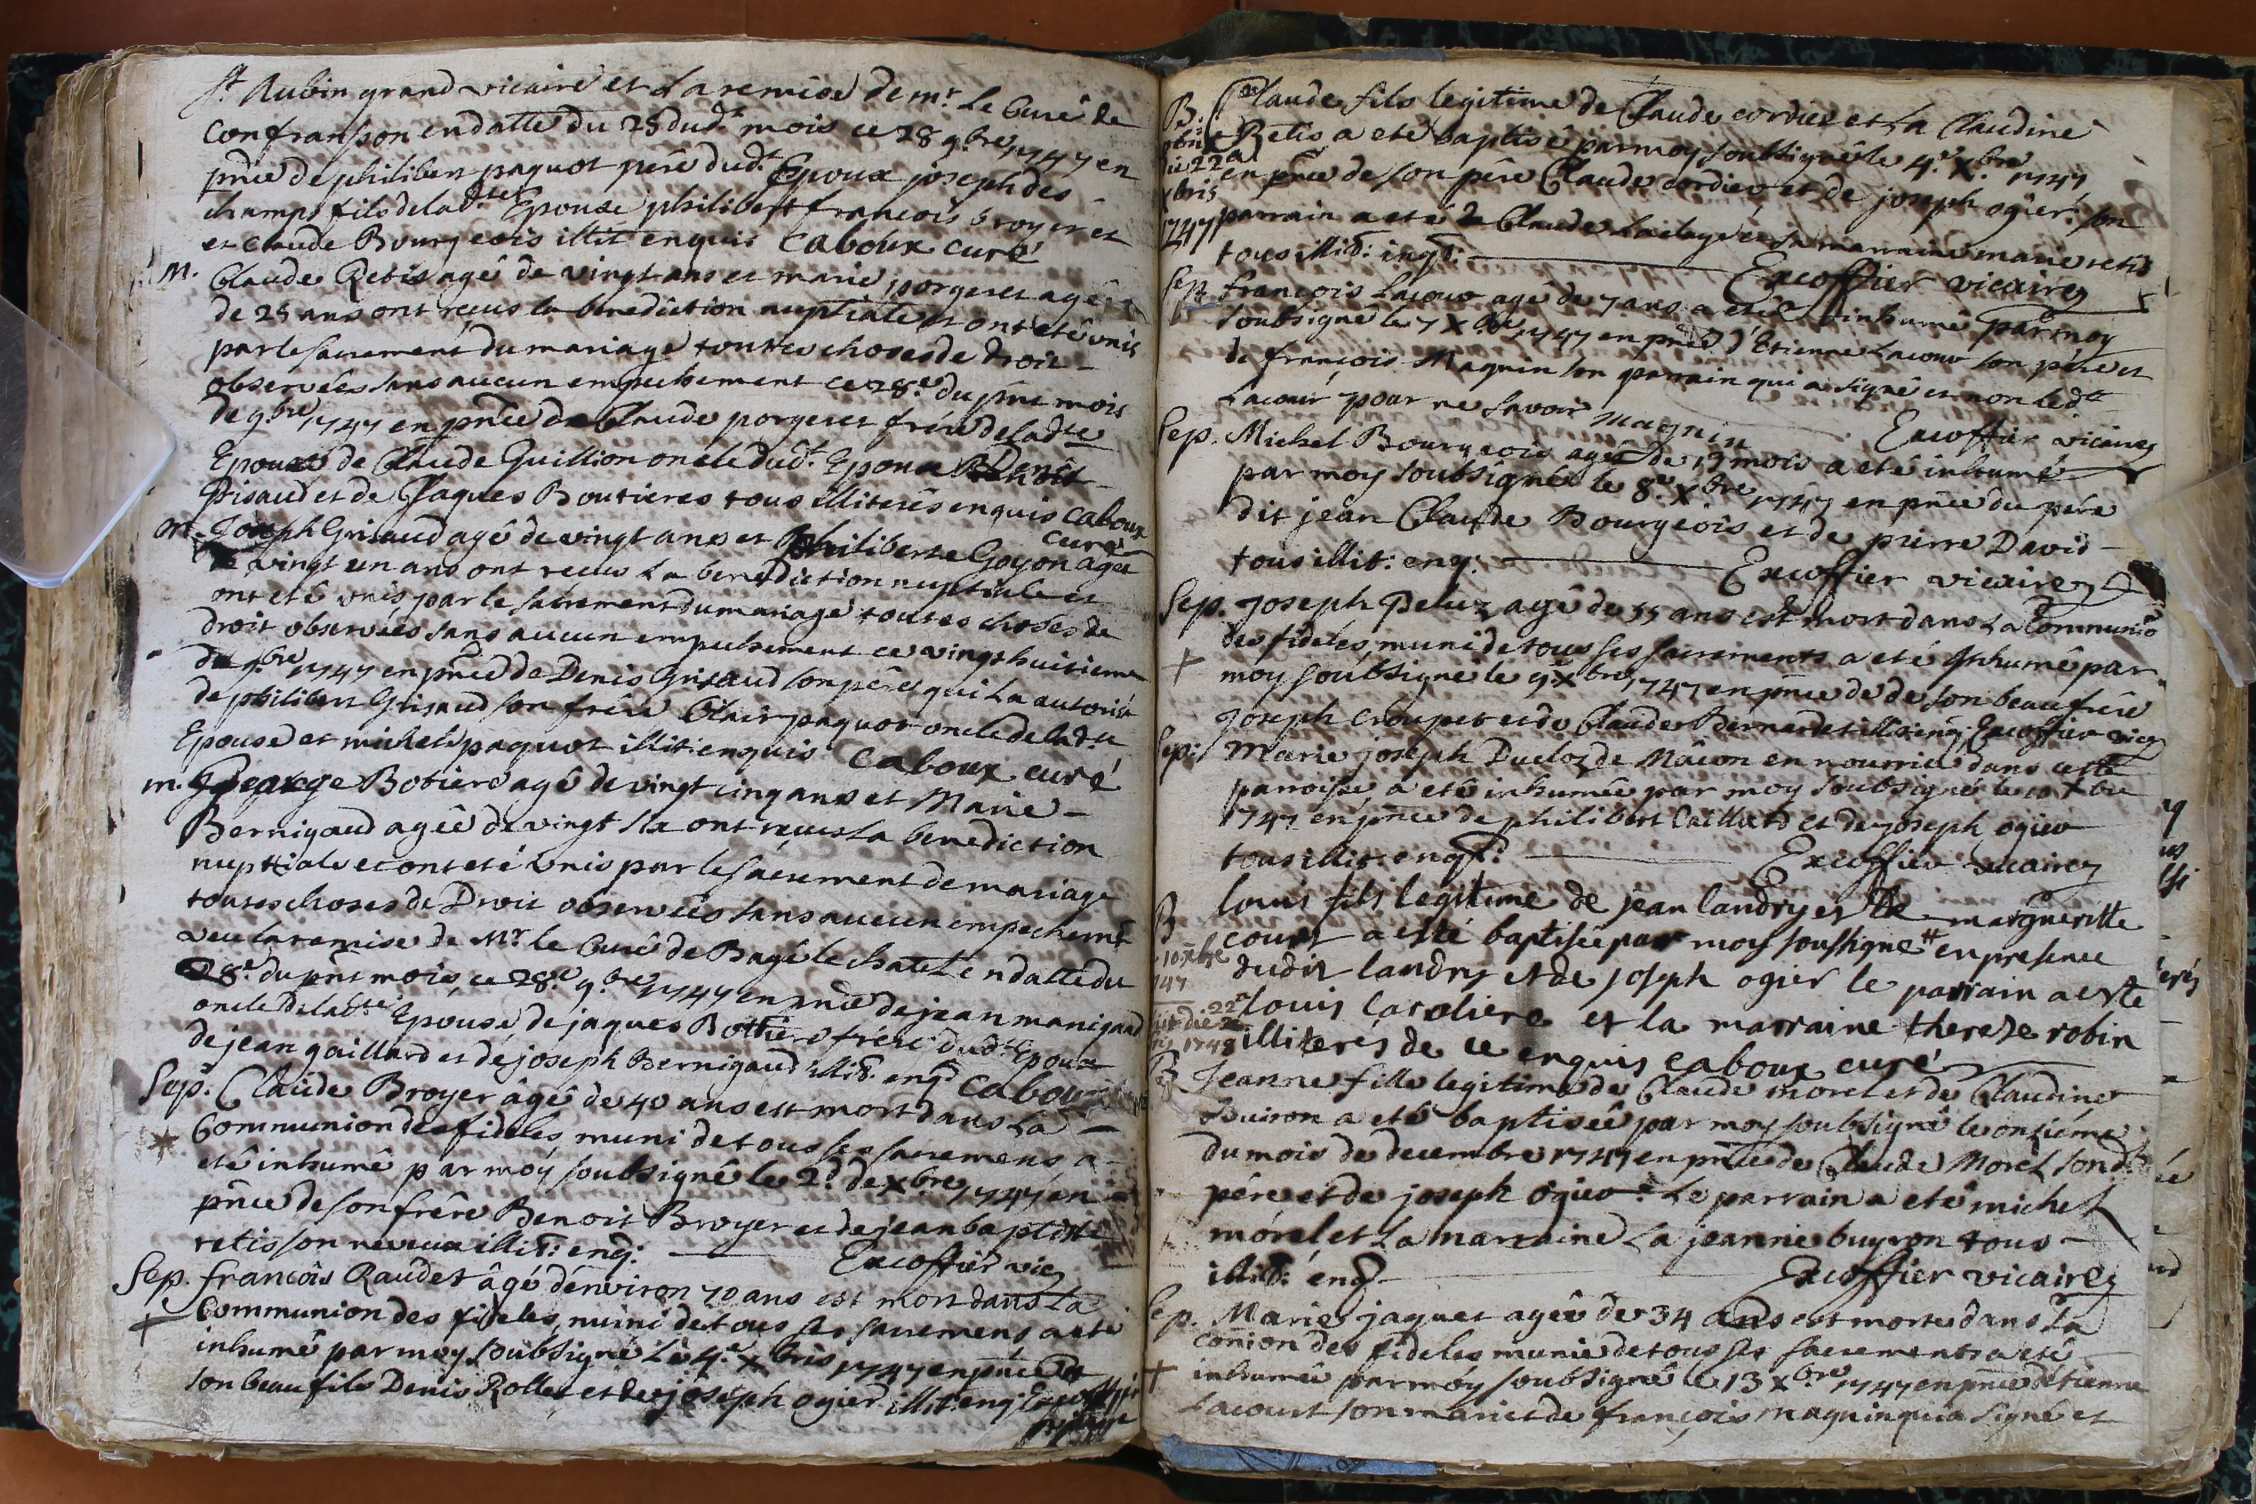 St Aubin grand vicaire et La remise de mr Le Curé de
Confranson en datte du 25 dudt mois ce 28 9bre 1747 en
pnce de philibert paquot pêre dudt Epoux joseph des
champs fils de ladtte Epouse philibert françois broyer et
et Claude Bourgeois illit enquis Caboux curé
M. Claude Retis agé de vingt ans et marie porgeret agée
de 25 ans ont recus la benediction nuptiale et ont eté unis
par le sacrement du mariage touttes choses de droit
observeés sans aucun empechement ce 28e du pnt mois
de 9bre 1747 en pnce de Claude porgeret frére de ladtte
Epouse de Claude Guillion oncle dudt Epoux Benoit
Pisaud et de Jaques Boutieres tous illiterés enquis Caboux
curé
M. Joseph Grisaud agé de vingt ans et philiberte Goyon ageé
de vingt un ans ont recus La benediction nuptiale et
ont eté unis par le sacrement du mariage toutes choses de
droit observeés sans aucun empechement ce vingt huitieme
de 9bre 1747 en pnce de Denis Grisaud son pére qui La autorisé
de philibert Grisaud son frére Clair paquot oncle de ladtte
Epouse et michel paquot illit enquis Caboux curé
m. George Botiere agé de vingt cinq ans et Marie
Bernigaud ageé de vingt six ont reçus La benediction
nuptiale et ont eté unis par le sacrement de mariage
toutes choses de Droit observeés sans aucun empechemt
veu la remise de Mr le Curé de Bagé le chatel en datte du
28e du pnt mois, ce 28e 9bre 1747 en pnce de jean manigaud
oncle de ladtte Epouse de jaques Bottiere frére dudt Epoux
de jean gaillard et de joseph Bernigaud illit. enqs Caboux
Sep. Claude Broyer âgé de 40 ans est mort dans La
Communion des fideles muni de tous ses sacremens a
eté inhumé par moy soubsigné le 2d de xbre 1747 en
pnce de son frére Benoit Broyer et de jean baptiste
retis son neveux illit: enq: Excoffier vic
Sep. françois Raudet âgé d'environ 70 ans est mort dans La
+ Communion des fideles muni de tous ses sacremens a eté
inhumé par moy soubsigné Le 4e xbris 1747 en pnce de
son beau fils Denis Rollet et de joseph ogier illit: enq Excoffier
B. Claude fils legitime de Claude cordier et La Claudine
Retis a eté baptisé par moy soubsigné le 4e Xbre 1747
en pnce de son pére Claude cordier et de joseph ogier: son
xbris
1747 parrain a eté Claude et sa marraine marie retis
tous illit: inqt: Excoffier vicaire
Sep. françois Lacour agé de 7 ans a eté inhumé par moy
soubsigné le 7 Xbre 1747 en pnce d'Etienne Lacour son pére et
de françois Magnin son parrain qui a signé et non ledtt
Lacour pour ne savoir Magnin Excoffier vicaire
Sep. Michel Bourgeois agé de 19 mois a eté inhumé
par moy soubsigné le 8e Xbre 1747 en pnce du pére
dit jean Claude Bourgeois et de pierre David
tous illit: enq: Excoffier vicaire
Sep. Joseph Peluz agé de 55 ans est mort dans La Communio
des fideles, muni de tous ses sacrements a eté Inhumé par
+ moy soubsigné le 9 xbre 1747 en pnce de de son beau frére
Joseph Croupet et de Claude Bernardet illit: enq: Excoffier vic
Sep: Marie joseph Ducloz de Mâcon en nourrice dans cette
parroisse a eté inhumée par moy soubsigné le 10 Xbre
1747 en pnce de philibert Caillard et de joseph ogier
tous illit: enqt: Excoffier vicaire
B louis fils legitime de jean landry et de margueritte
court a esté baptisée par moy soussigné # en presence
10 xbre
1747 dudit landry et de joseph ogier le parrain a esté
22a louis Caroliere et la marraine therese robin
1748 illiterés de ce enquis caboux curé
B Jeanne fille legitime de Claude morel et de Claudine
Buiron a eté baptisée par moy soubsigné le onziéme
du mois de decembre 1747 en pnce de Claude Morel sondt
pére et de joseph ogier: Le parrain a eté michel
morel et La marraine La jeanne buyron tous
illit: enq Excoffier vicaire
Sep. Marie jaquet agée de 34 ans est morte dans La
conion des fideles munie de tous ses sacrements a eté
+ inhumée par moy soubsigné le 13 xbre 1747 en pnce d'etienne
Lacourt son mari et de françois magnin qui a signé et